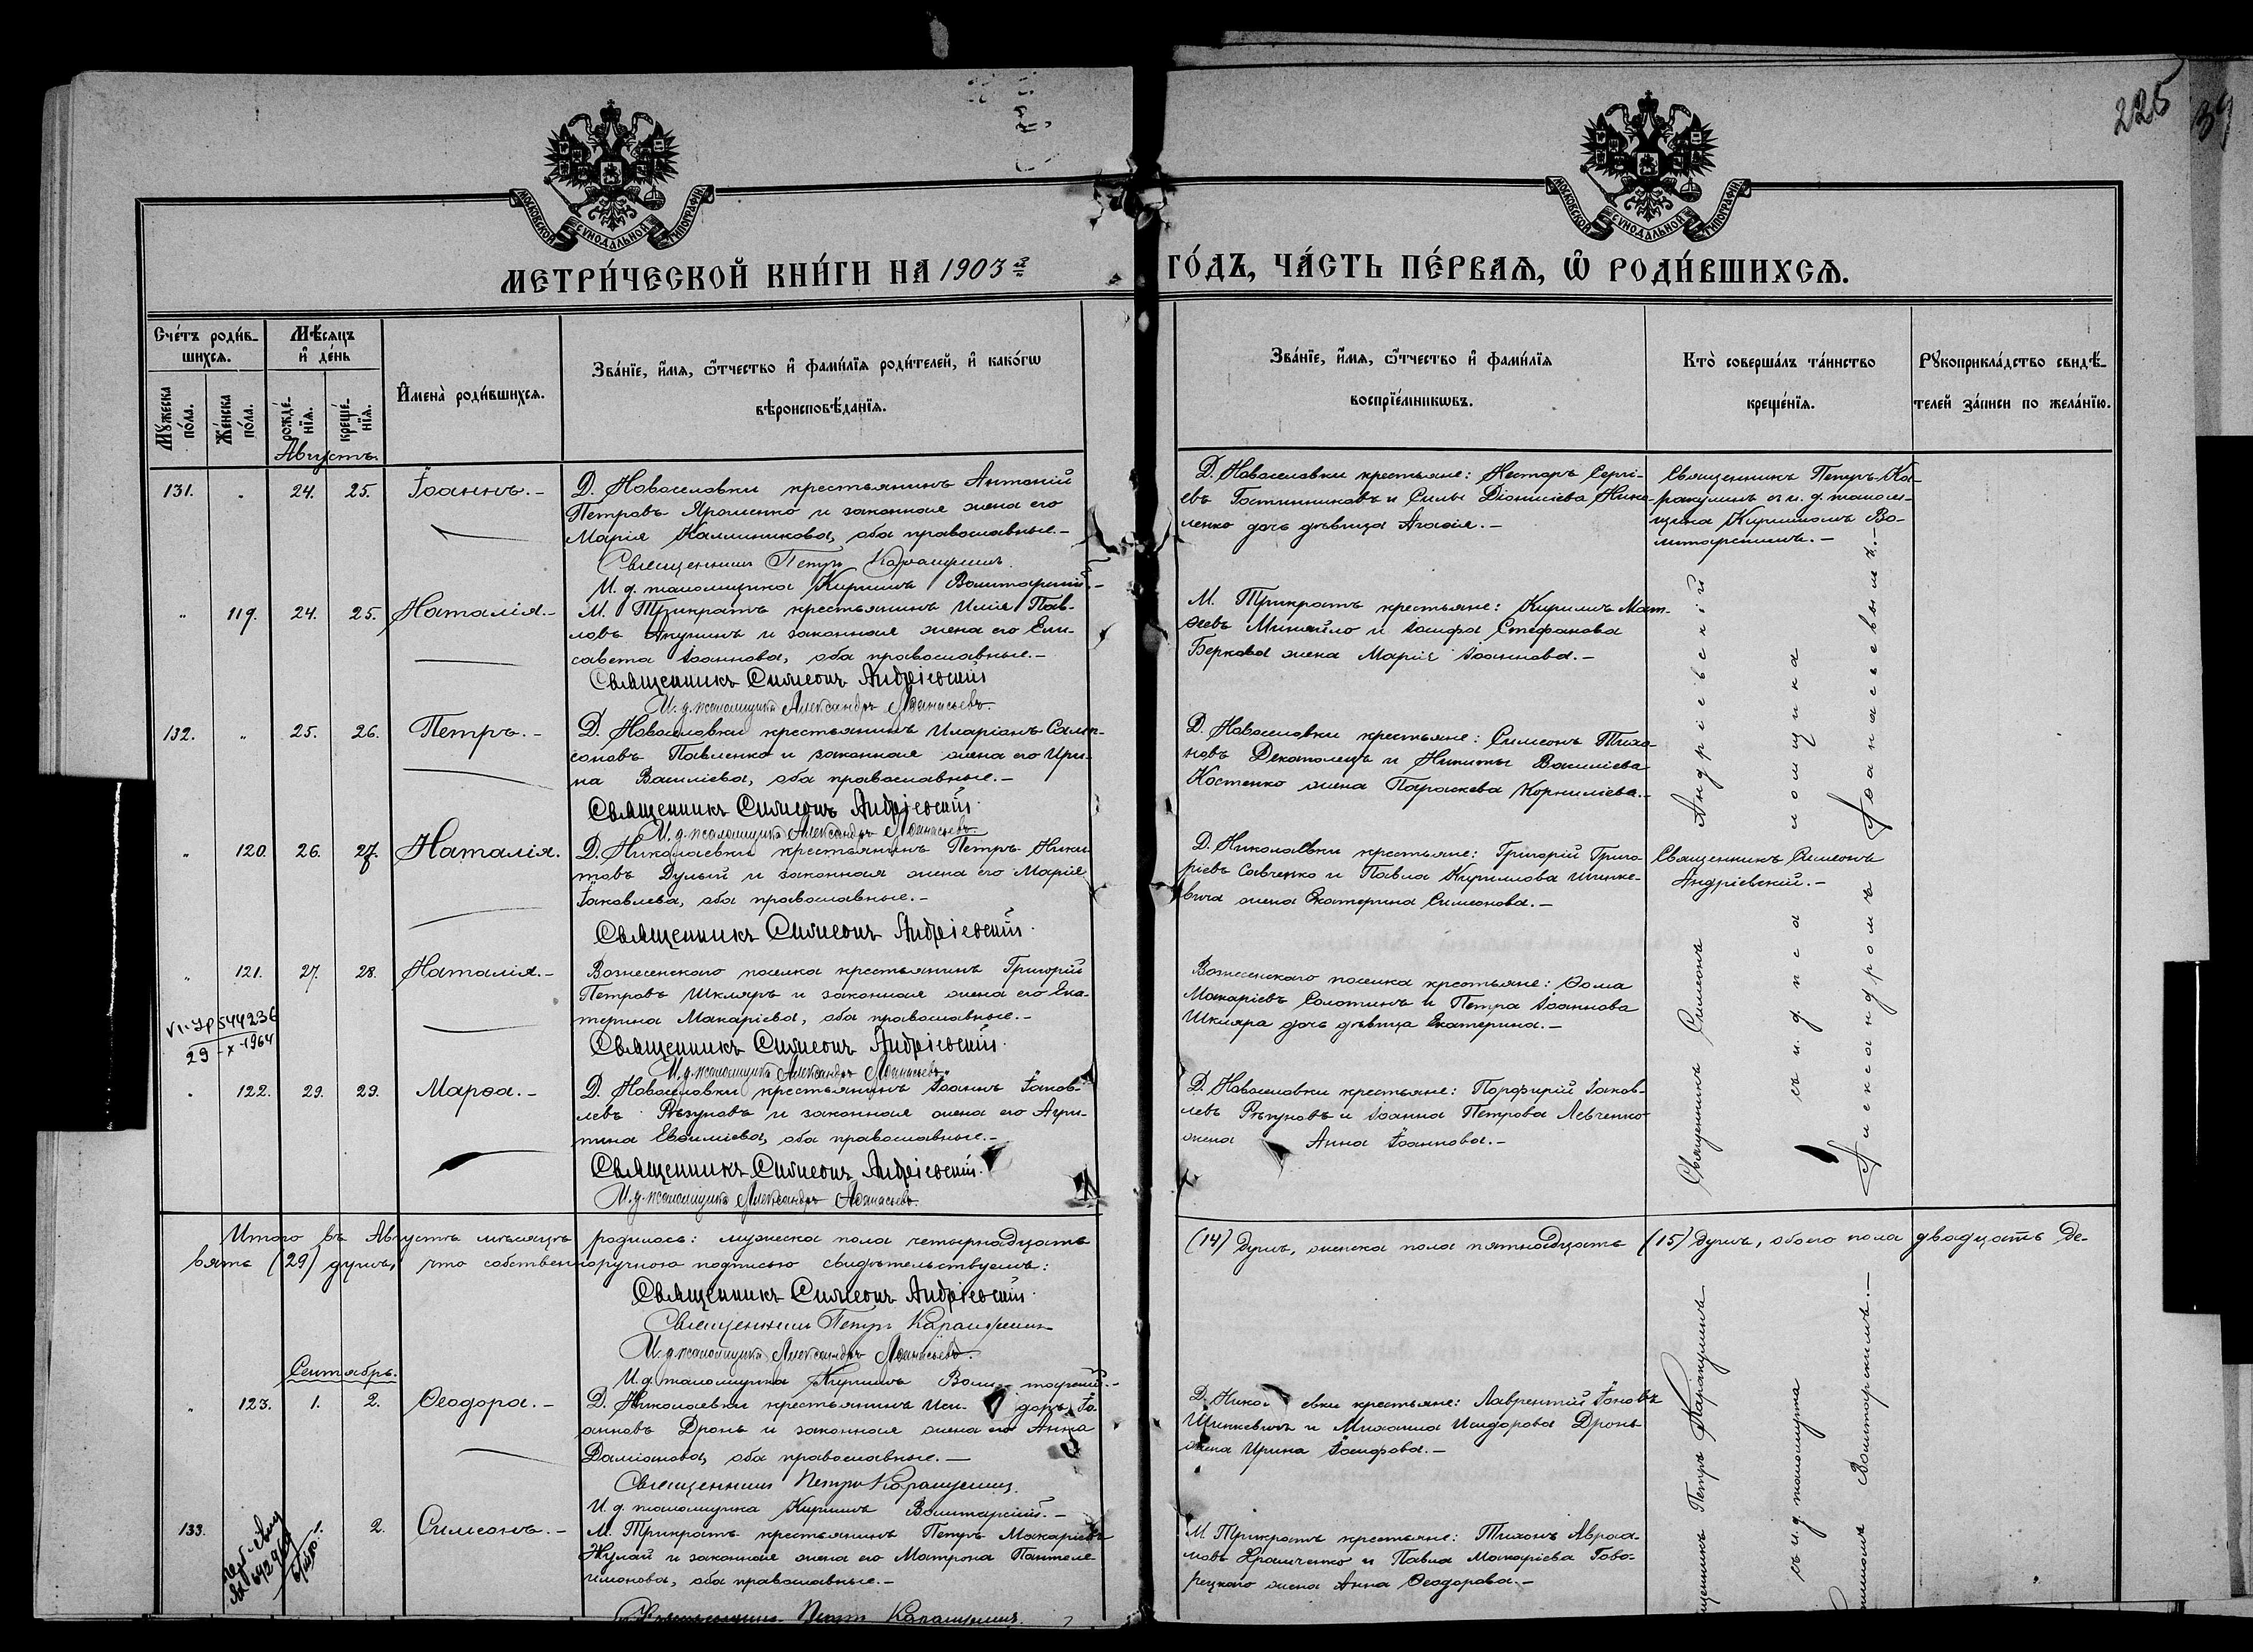 225
39
МОСКОВСКОЙ СѴНОДАЛЬНОЙ ТИПОГРАФІИ
МОСКОВСКОЙ СѴНОДАЛЬНОЙ ТИПОГРАФІИ
МЕТРИ́ЧЕСКОЙ КНИ́ГИ НА 1903й ГО́ДЪ, ЧА́СТЬ ПЕ́РВАѦ, Ѽ РОДИ́ВШИХСѦ.
Сче́тъ роди́в-
шихсѧ.
Мѣ́сѧцъ
и҆ де́нь
Мꙋ́жеска
по́ла.
Же́нска
по́ла.
рожде́-
нїѧ.
креще́-
нїѧ.
И҆мена̀ роди́вшихсѧ.
Зва́нїе, и҆́мѧ, ѻ҆́тчество и҆ фами́лїѧ роди́телей, и҆ како́гѡ
вѣроисповѣ́данїѧ.
Зва́нїе, и҆́мѧ, ѻ҆́тчество и҆ фами́лїѧ
воспрїе́мникѡвъ.
Кто̀ соверша́лъ та́инство
креще́нїѧ.
Рꙋкоприкла́дство свидѣ́-
телей за́писи по жела́нїю.
Августъ.
131. „ 24. 25. Іоаннъ.-
Д. Новоселовки крестьянинъ Антоній
Петровъ Яроменко и законная жена его
Марія Каллиникова, оба православные.-
Священникъ Петръ Каракулинъ.
И. д. псаломщика Кириллъ Волитарскій.-
Д. Новоселовки крестьяне: Несторъ Сергі-
евъ Гостинниковъ и Силы Діонисіева Нико-
ленко дочь дѣвица Агаѳія.-
Священникъ Петръ Ка-
ракулинъ съ и. д. псалом-
щика Кирилломъ Во-
литарскимъ.-
„ 119. 24. 25. Наталія.-
М. Трикратъ крестьянинъ Илія Пав-
ловъ Якунинъ и законная жена его Ели-
савета Іоаннова, оба православные.-
Священникъ Симеонъ Андріевскій
И. д. псаломщика Александръ Аѳанасьевъ.
М. Трикратъ крестьяне: Кириллъ Мат-
ѳеевъ Миняйло и Іосифа Стефанова
Беркова жена Марія Іоаннова.-
132. „ 25. 26. Петръ.-
Д. Новоселовки крестьянинъ Иларіонъ Самп-
соновъ Павленко и законная жена его Ири-
на Василіева, оба православные.-
Священникъ Симеонъ Андріевскій.
И. д. псаломщика Александръ Аѳанасьевъ.
Д. Новоселовки крестьяне: Симеонъ Тихо-
новъ Декаполецъ и Никиты Василіева
Костенко жена Параскева Корниліева.-
„ 120. 26. 27. Наталія.
Д. Николаевки крестьянинъ Петръ Ники-
товъ Дулый и законная жена его Марія
Іаковлева, оба православные.-
Священникъ Симеонъ Андріевскій.
Д. Николаевки крестьяне: Григорій Григо-
ріевъ Савченко и Павла Кириллова Шинке-
вича жена Екатерина Симеонова.-
Священникъ Симеонъ
Андріевскій.-
„ 121. 27. 28. Наталія.-
Вознесенскаго поселка крестьянинъ Григорій
Петровъ Шкляръ и законная жена его Ека-
терина Макаріева, оба православные.-
Священникъ Симеонъ Андріевскій.
И. д. псаломщика Александръ Аѳанасьевъ.
Вознесенскаго поселка крестьяне: Ѳома
Макаріевъ Солотинъ и Петра Іоаннова
Шкляра дочь дѣвица Екатерина.-
544236
29-X-1964
„ 122. 29. 29. Марѳа.-
Д. Новоселовки крестьянинъ Іоаннъ Іаков-
левъ Рѣзуновъ и законная жена его Агри-
пина Евѳиміева, оба православные.-
Священникъ Симеонъ Андріевскій.
И. д. псаломщика Александръ Аѳанасьевъ.
Д. Новоселовки крестьяне: Порфирій Іаков-
левъ Рѣзуновъ и Іоанна Петрова Левченко
жена Анна Іоаннова.-
Священникъ Симеонъ Андріевскій
съ и. д. псаломщика
Александромъ Аѳанасьевымъ.-
Итого въ Августѣ мѣсяцѣ родилось: мужеска пола четырнадцать (14) душъ, женска пола пятнадцать (15) душъ, обоего пола двадцать де-
вять (29) душъ, что собственноручною подписью свидѣтельствуемъ:
Священникъ Симеонъ Андріевскій.
Священникъ Петръ Каракулинъ
И. д. псаломщика Александръ Аѳанасьевъ.
И. д. псаломщика Кириллъ Волитарскій.-
Сентябрь.
„ 123. 1. 2. Ѳеодора.-
Д. Николаевки крестьянинъ Иси- доръ Іо-
анновъ Дронь и законная жена его Анна
Даміанова, оба православные.-
Священникъ Петръ Каракулинъ.
И. д. псаломщика Кириллъ Волитарскій.-
Д. Никол евки крестьяне: Лаврентій Іоновъ
Шинкевичъ и Михаила Исидорова Дронь
жена Ирина Іосифова.-
133. 2. Симеонъ.-
М. Трикратъ крестьянинъ Петръ Макаріевъ
Жулай и законная жена его Матрона Пантеле-
имонова, оба православные.-
Священникъ Петръ Каракулинъ.
М. Трикратъ крестьяне: Тихонъ Авраа-
мовъ Храмченко и Павла Макаріева Гово-
рецкаго жена Анна Ѳеодорова.-
щенникъ Петръ Каракулинъ
съ и. д. псаломщика
Волитарскимъ.-